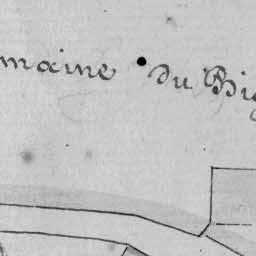 maine du Big